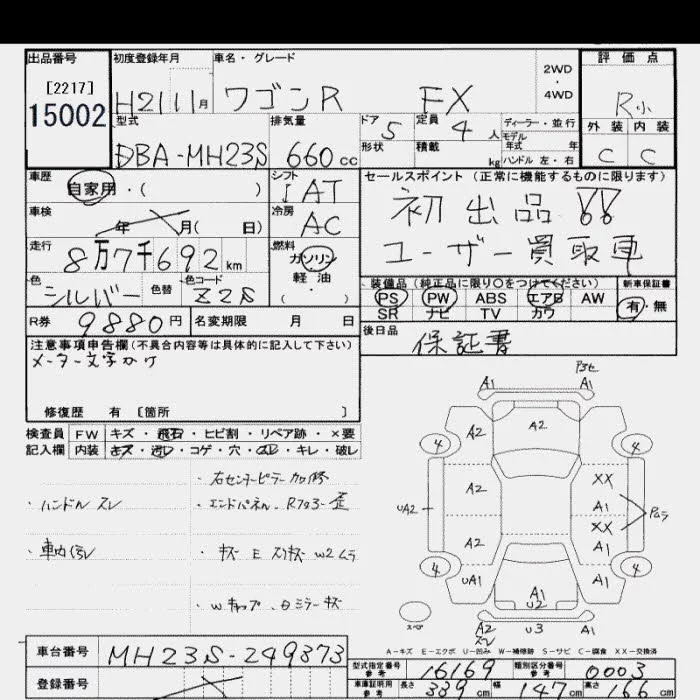 出品番号 初度登録年月 車名・グレード 評価点
[2217]
15002
H21 11月 ワゴンR FX
2WD
・
4WD
R小
外装 内装
C C
型式 排気量 ドア 定員 ディーラー・並行
DBA-MH23S 660cc 5 4人
モデル年式 年
形状 積載 kg ハンドル 左・右
車歴 シフト セールスポイント(正常に機能するものに限ります)
自家用・( ) IAT
初出品!!
車検 冷房
年 月( 日) AC
ユーザー買取車
走行 燃料
8万7千692km ガソリン・軽油・( )
色 色替 色コード
シルバー Z2S
装備品(純正品に限り○をつけてください) 新車保証書
PS PW ABS エアB AW 有・無
SR ナビ TV カワ
R券 9880円 名変期限 月 日
後日品 保証書
注意事項申告欄(不具合内容等は具体的に記入して下さい)
メーター文字かけ
修復歴 有 [箇所 ]
検査員記入欄
FW キズ・飛石・ヒビ割・リペア跡・×要
内装 キズ・汚レ・コゲ・穴・スレ・キレ・破レ
・右センターピラー加修
・ハンドル スレ ・エンドパネル、
・車内汚レ
A1 A1
A2 A2
4 4
A2 XX
UA2 A1
XX
A2 A1
4 4
UA1 A1 A1
U2
スペア A2 U3 A1
スレ
A-キズ E-エクボ U-凹み W-補修跡 S-サビ C-腐食 XX-交換済
車台番号 MH23S-249373
登録番号
型式指定番号 参考 16169 類別区分番号 参考 0003
車庫証明用 参考 長さ 339cm 幅 147cm 高さ 166cm